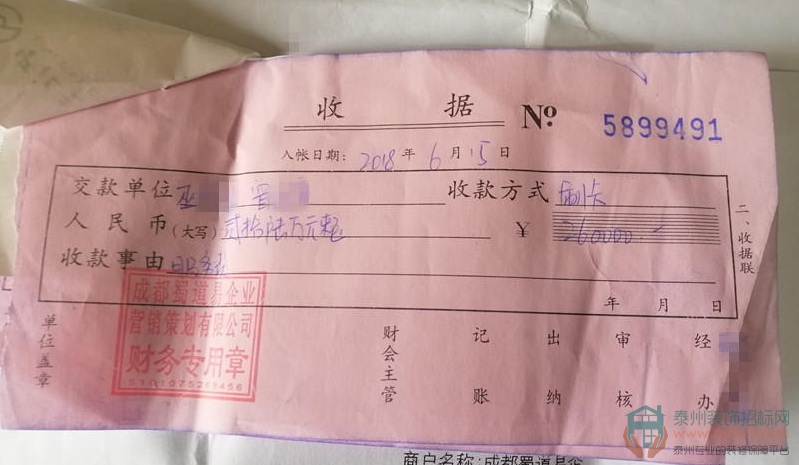 收 据 № 5899491
入帐日期: 2018 年 6 月 15 日
交款单位 巫 收款方式 刷卡
人民币(大写) 贰拾陆万元整 ¥ 260000 —
收款事由 服务费
二、收据联
年 月 日
成都蜀道易企业
营销策划有限公司
财务专用章
单位盖章 财会主管 记账 出纳 审核 经办
泰州装饰招标网
泰州专业的装修保障平台
商户名称:成都蜀道易企